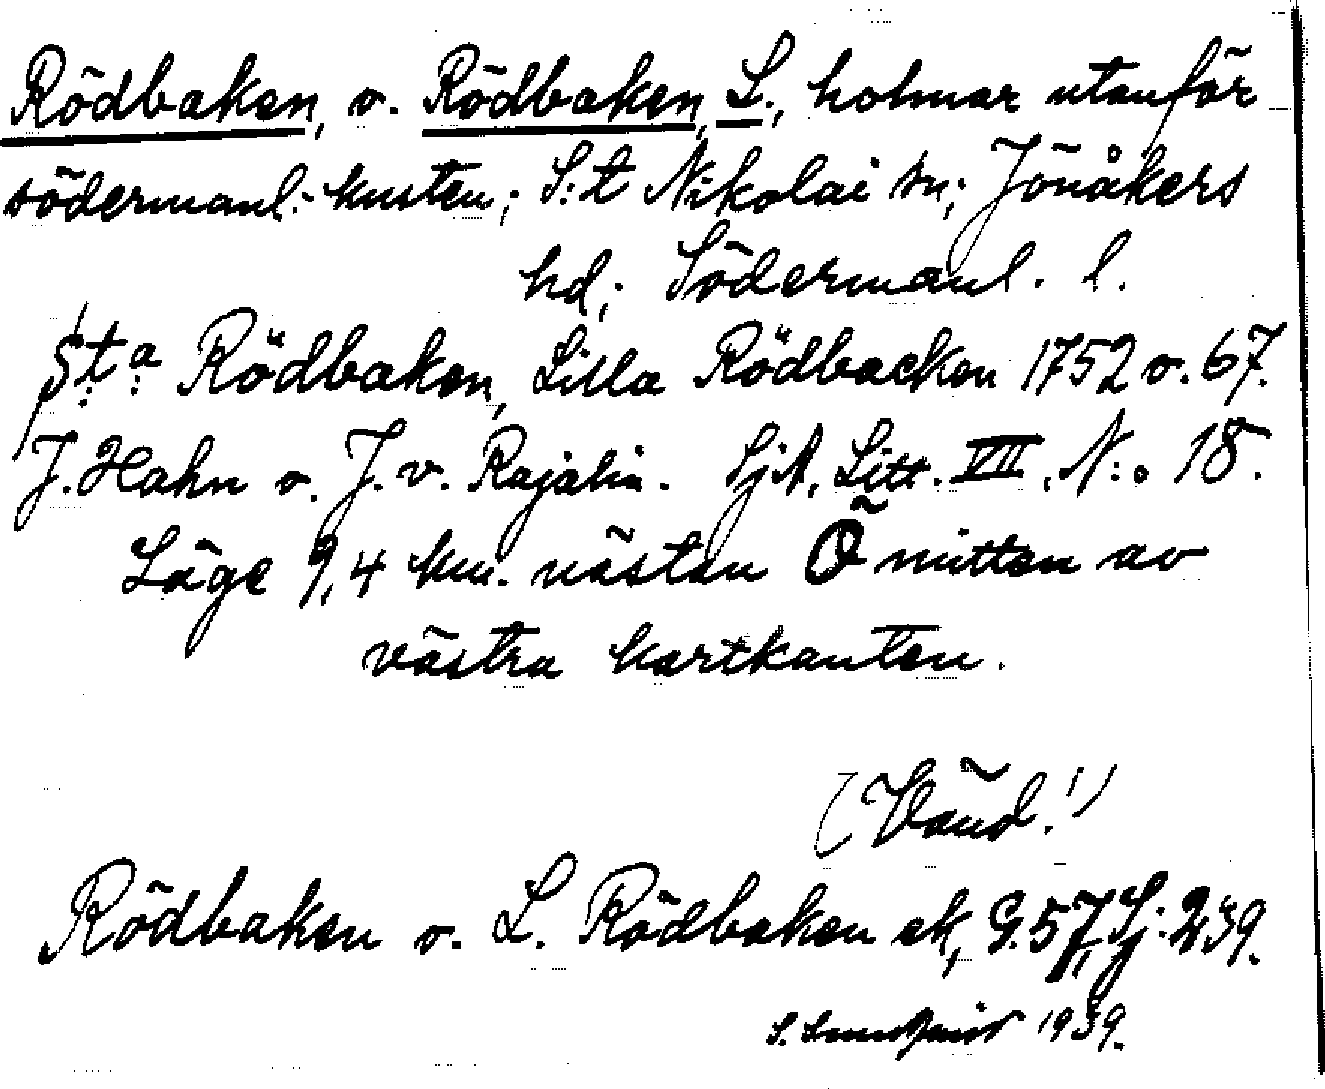 Rödbaken, o. Rödbaken, L., holmar utanför
södermanl. kusten; S:t Nikolai sn; Jönåkers
hd; Södermanl. l.
St:a Rödbaken, Lilla Rödbacken 1752 o. 67.
J. Hahn o. J. v. Rajalin. SjA, Litt. VIII, N:o 18.
Läge 9,4 km. västan Ö mitten av
västra kartkanten.
(Vänd!)
Rödbaken o. L. Rödbaken ek, G. 57, Sj: 239.
S. 1939.